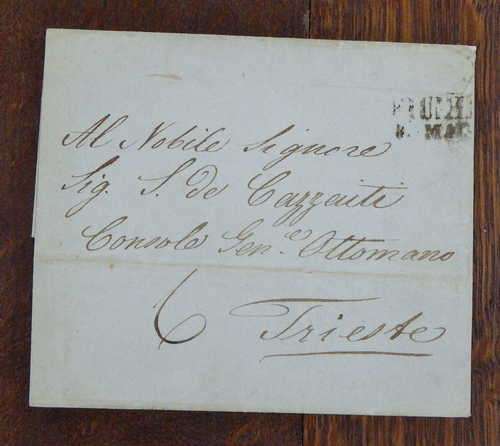 FIUME
MAR
Al Nobile Signore
Sig. S. de Cazzaiti
Console Gen.e Ottomano
6 Trieste